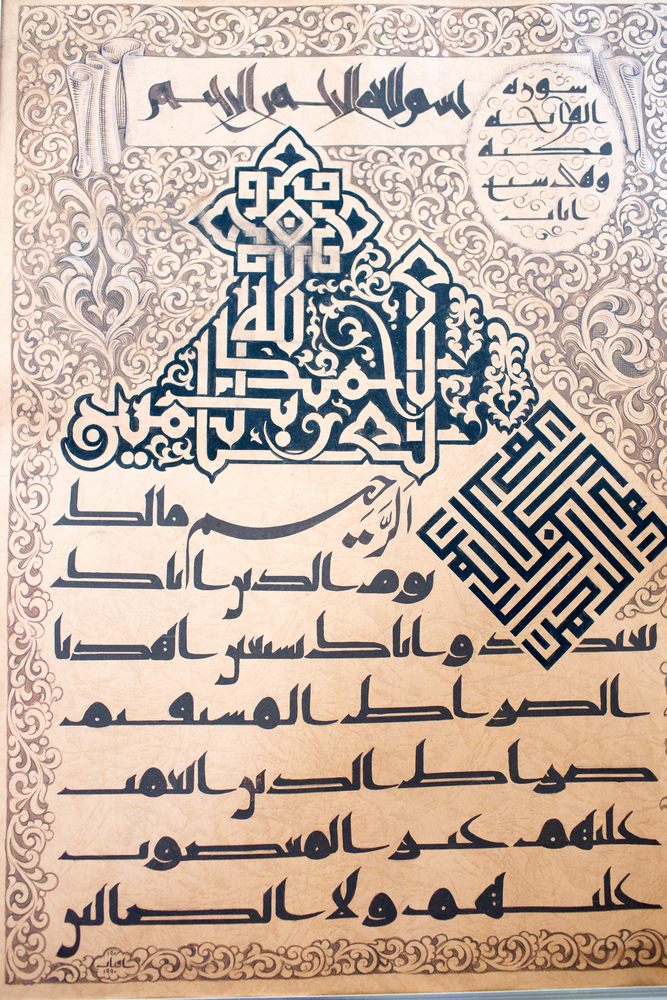 بسم الله الرحمن الرحيم
سورة
الفاتحة
مكية
وهي سبع
ايات
الحمد لله
رب العالمين
الرحمن الرحمن الرحمن الرحمن
الرَّحيم مالك
يوم الدين اياك
نعبد و اياك نستعين اهدنا
الصراط المستقيم
صراط الذين انعمت
عليهم غير المغضوب
عليهم ولا الضالين